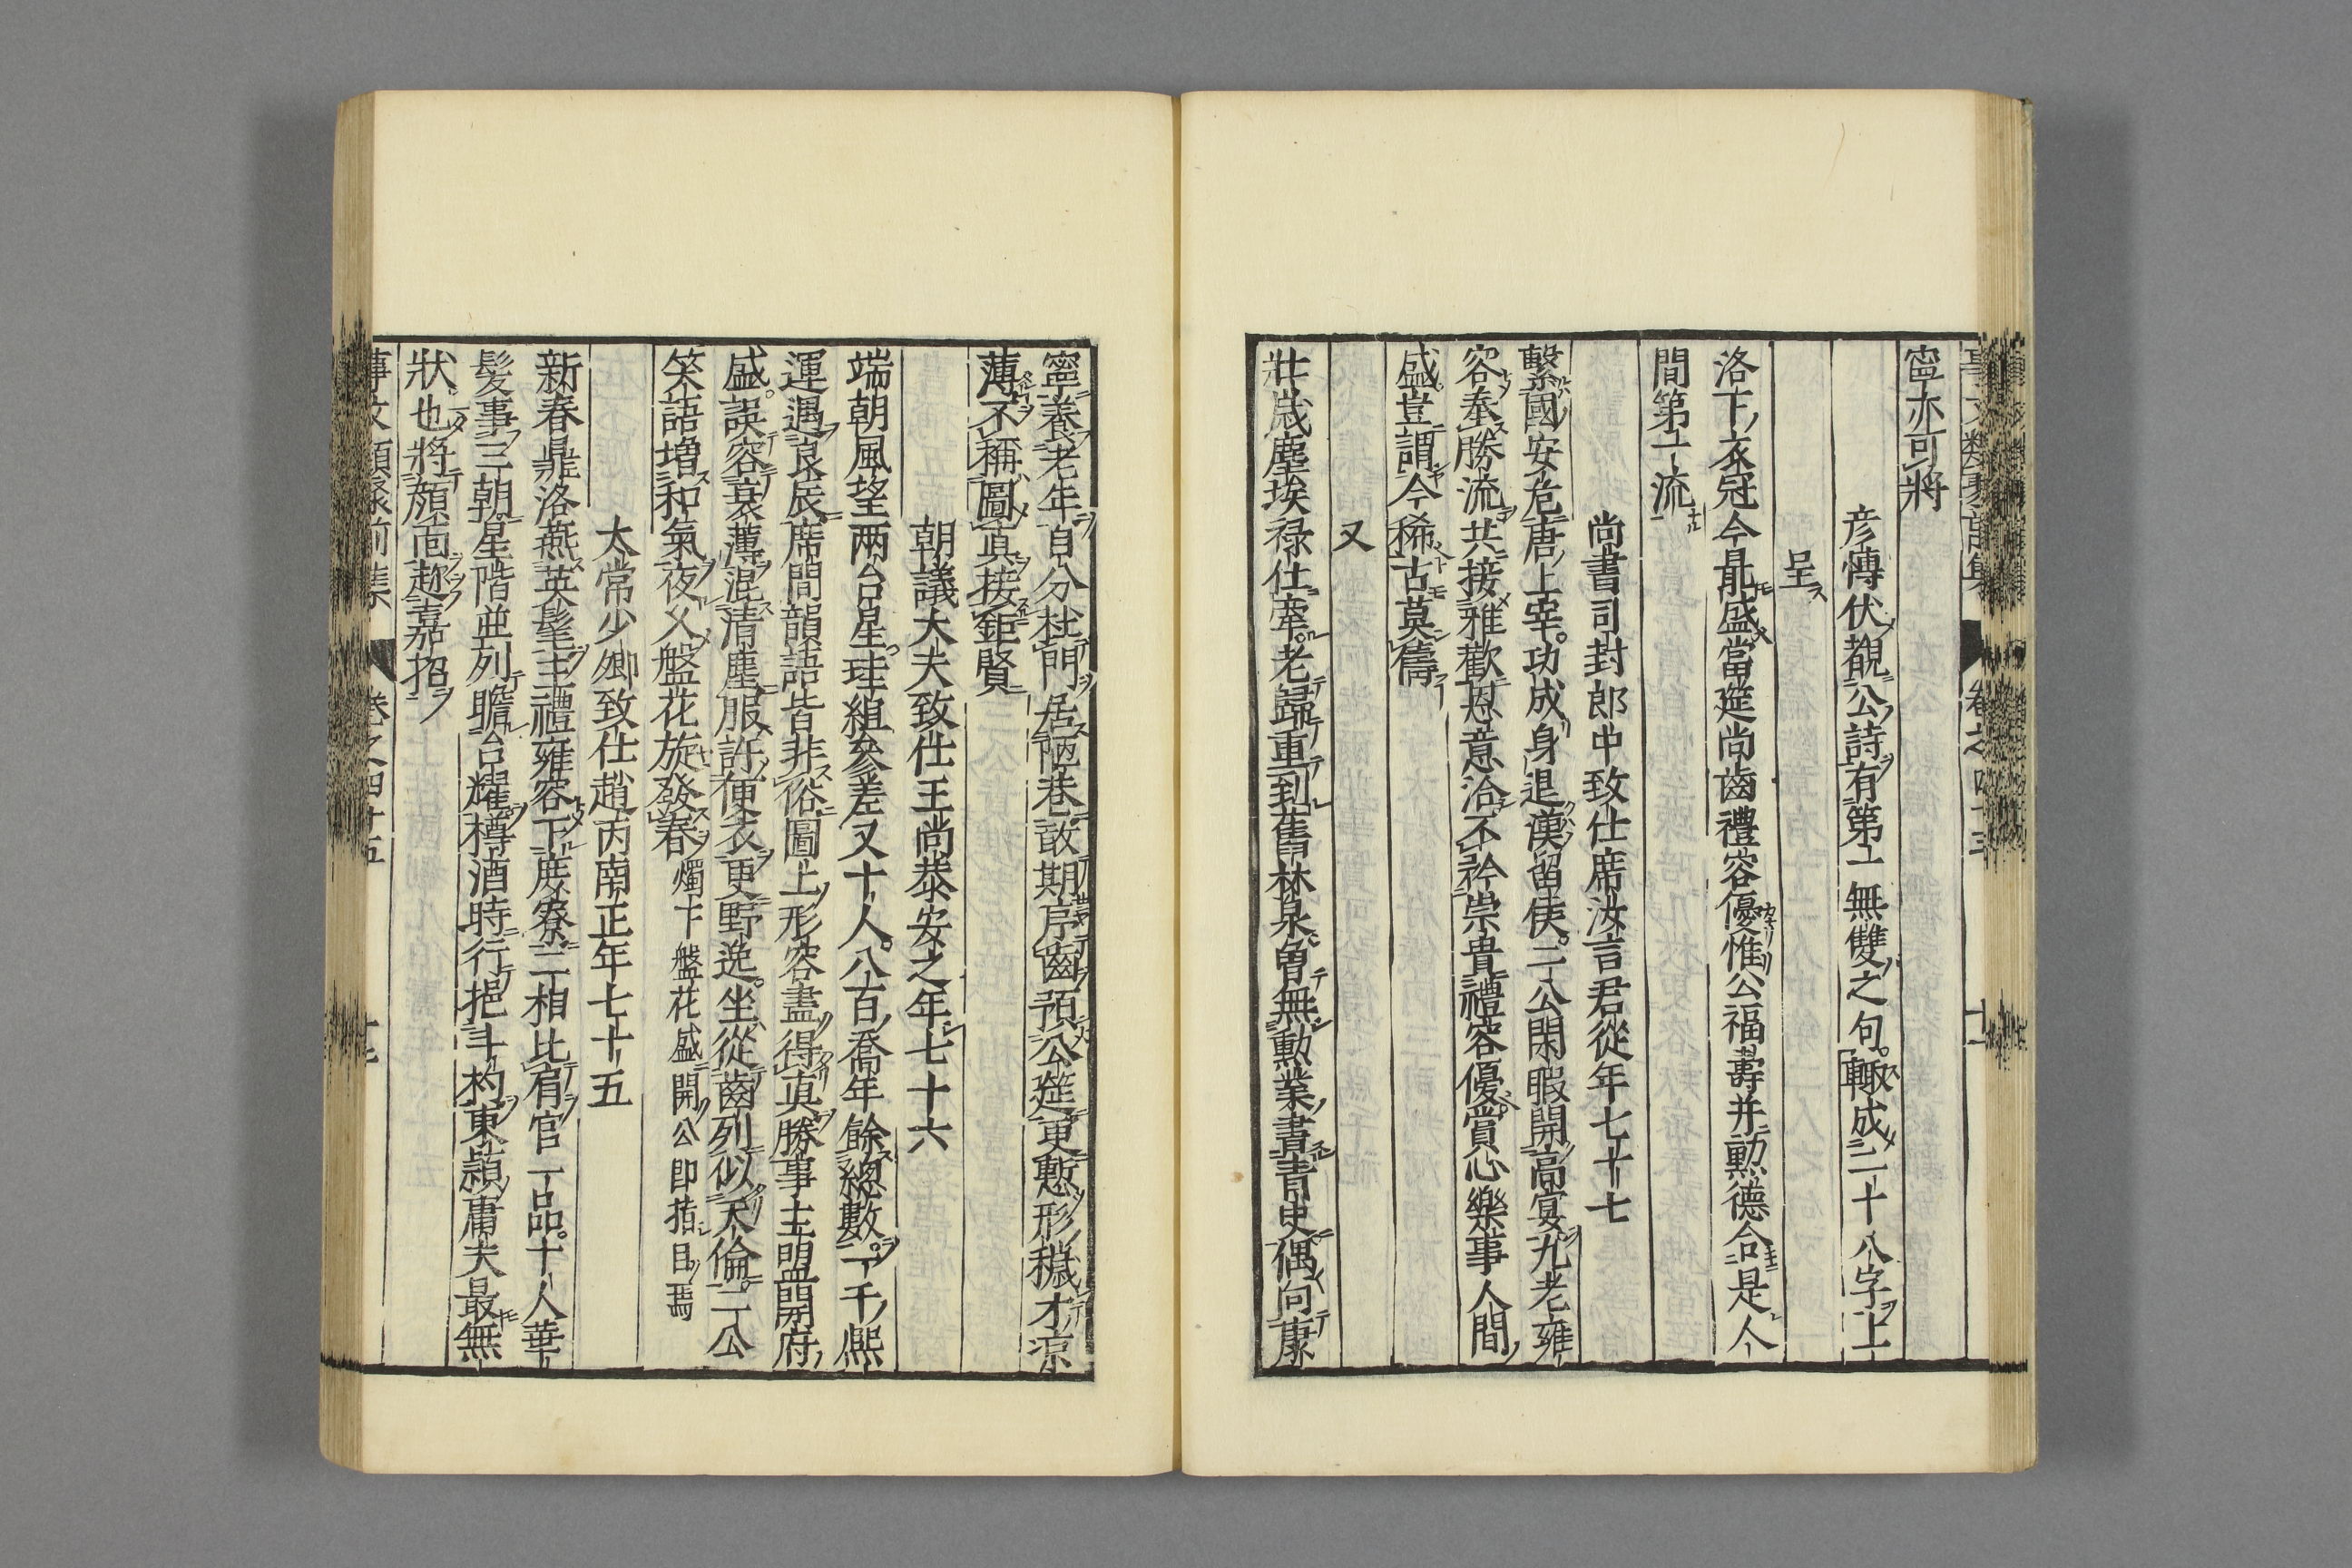 寧亦可將
彦慱伏覩公詩有第一無雙之句輙成二十八字上
呈
洛下衣冠今最盛當筵尚齒禮容優惟公福壽并勲德合是人
間第一流
尚書司封郎中致仕席汝言君從年七十七
繫國安危唐上宰功成身退漢留侯二公閑暇開高宴九老雍
容奉勝流共接雅歡恩意洽不矜崇貴禮容優賞心樂事人間
盛豈謂今稀古莫儔
又
壯歳塵埃禄仕牽老歸重到舊林泉曽無勲業書青史偶向康
寧養老年自分杜門居陋巷敢期序齒預公筵更慙形穢才凉
薄不稱圖真接鉅賢
朝議大夫致仕王尚恭安之年七十六
端朝風望兩台星珪組參差又十人八百喬年餘總數一千熙
運遇良辰席間韻語皆非俗圖上形容盡得真勝事主盟開府
盛誤容衰薄混清塵服許便衣更野逸坐從齒列似天倫二公
笑語増和氣夜乂盤花旋發春 燭下盤花盛開公即指目焉
太常少卿致仕趙丙南正年七十五
新春鼎洛燕英髦主禮雍容下庶寮二相比肩官一品十人華
髪事三朝星階並列瞻台耀樽酒時行挹斗杓東頴庸夫最無
狀也將顔面趂嘉招